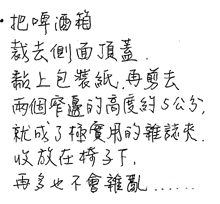 ·把啤酒箱
裁去側面頂蓋.
黏上包裝紙,再剪去
兩個窄邊的高度約5公分,
就成了極實用的雜誌夾.
收放在椅子下,
再多也不會雜亂......